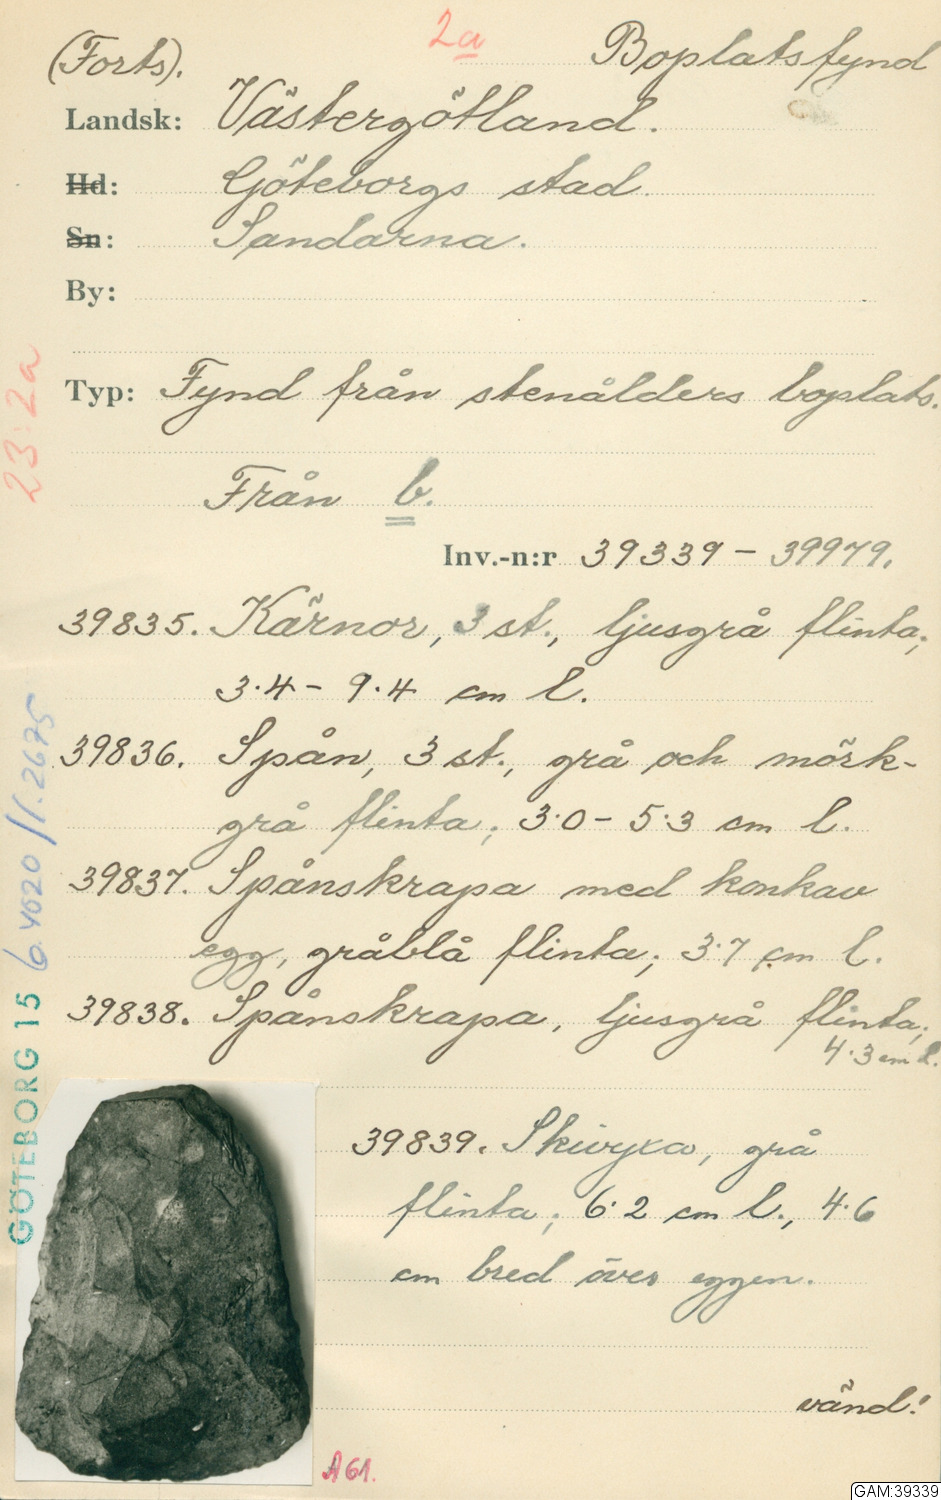 2a
(Forts). Boplatsfynd
Landsk: Västergötland.
Hd: Göteborgs stad.
Sn: Sandarna.
By:
Typ: Fynd från stenålders boplats.
Från b.
Inv.-n:r 39339 - 39979.
39835. Kärnor, 3 st., ljusgrå flinta;
3.4 - 9.4 cm l.
39836. Spån, 3 st., grå och mörk-
grå flinta; 3.0 - 5.3 cm l.
39837. Spånskrapa med konkav
egg, gråblå flinta; 3.7 cm l.
39838. Spånskrapa, ljusgrå flinta;
4.3 cm l.
39839. Skivyxa, grå
flinta; 6.2 cm l., 4.6
cm bred över eggen.
vänd!
A 61.
23:2a
GÖTEBORG 15
GAM:39339